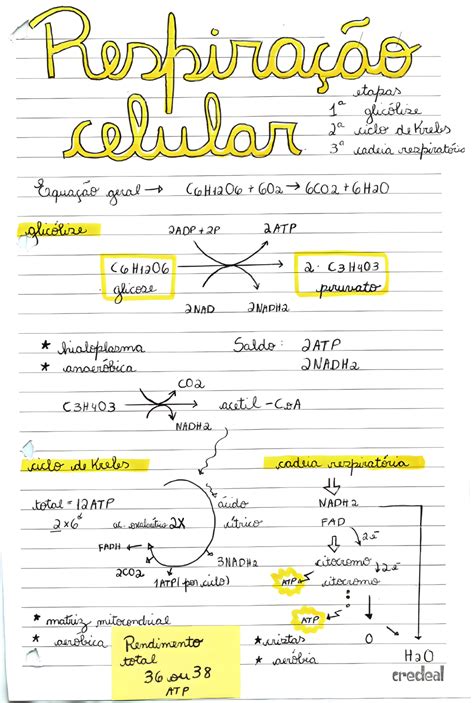 Respiração
celular
etapas
1ª glicólise
2ª ciclo de Krebs
3ª cadeia respiratória
Equação geral → C6H12O6 + 6O2 → 6CO2 + 6H2O
glicólise
2ADP + 2P
2ATP
C6H12O6
glicose
2. C3H4O3
piruvato
2NAD
2NADH2
* hialoplasma
* anaeróbica
Saldo: 2ATP
2NADH2
C3H4O3
CO2
NADH2
acetil-CoA
ciclo de Krebs
total = 12ATP
2x6
ac. oxalacético 2X
ácido
cítrico
FADH
2CO2
1ATP (por ciclo)
3NADH2
* matriz mitocondrial
* aeróbica
Rendimento
total
36 ou 38
ATP
cadeia respiratória
NADH2
FAD
2e
citocromo
2e
ATP
citocromo
ATP
O
H2O
* cristas
* aeróbia
credeal